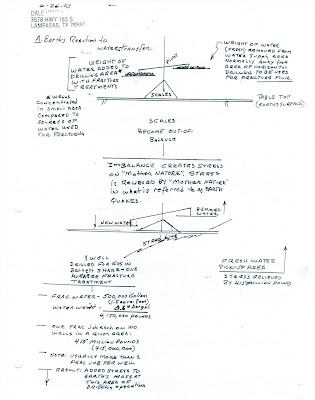 6-26-09
DALE
3578 HWY 183 S.
LAMPASAS, TX
A. Earths Reaction to
WATER TRANSFER:
WEIGHT OF
WATER ADDED TO
DRILLING AREA
WITH FRACTURE
TREATMENTS
PIVOT
WEIGHT OF WATER
(FRESH) REMOVED FROM
WATER SUPPLY AREA
NORMALLY AWAY FROM
AREA OF HORIZONTAL
DRILLING TO BE USED
FOR FRACTURE FLUID.
WELLS
CONCENTRATED
IN SMALL AREA
COMPARED TO
SOURCES OF
WATER USED
FOR FRACMENTS
SCALES
TABLE TOP
(EARTHS SURFACE)
SCALES
BECOME OUT-OF-
BALANCE
IMBALANCE CREATES STRESS
ON "MOTHER NATURE", STRESS
IS RELIEVED BY "MOTHER NATURE"
IN WHAT IS REFERRED TO AS EARTH
QUAKES.
NEW WATER
REMOVED
WATER
1 WELL
DRILLED FOR GAS IN
BARNETT SHALE - ONE
AVERAGE FRACTURE
TREATMENT
FRESH WATER
PICKUP AREA
STRESS RELIEVED
BY 415 MILLION POUNDS
FRAC WATER - 500,000 Gallons
WATER WEIGHT - 8.3 # per gal
4,150,000 POUNDS
ONE FRAC JOB EACH ON 100
WELLS IN A GIVEN AREA:
415 MILLION POUNDS
(415,000,000)
NOTE: USUALLY MORE THAN 1
FRAC JOB PER WELL
RESULT: ADDED STRESS TO
EARTH'S MASS AT
THIS AREA OF
DRILLING OPERATIONS